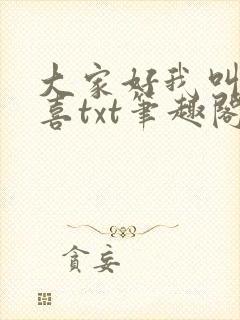 大家好我叫
喜txt笔趣阁
贪妄